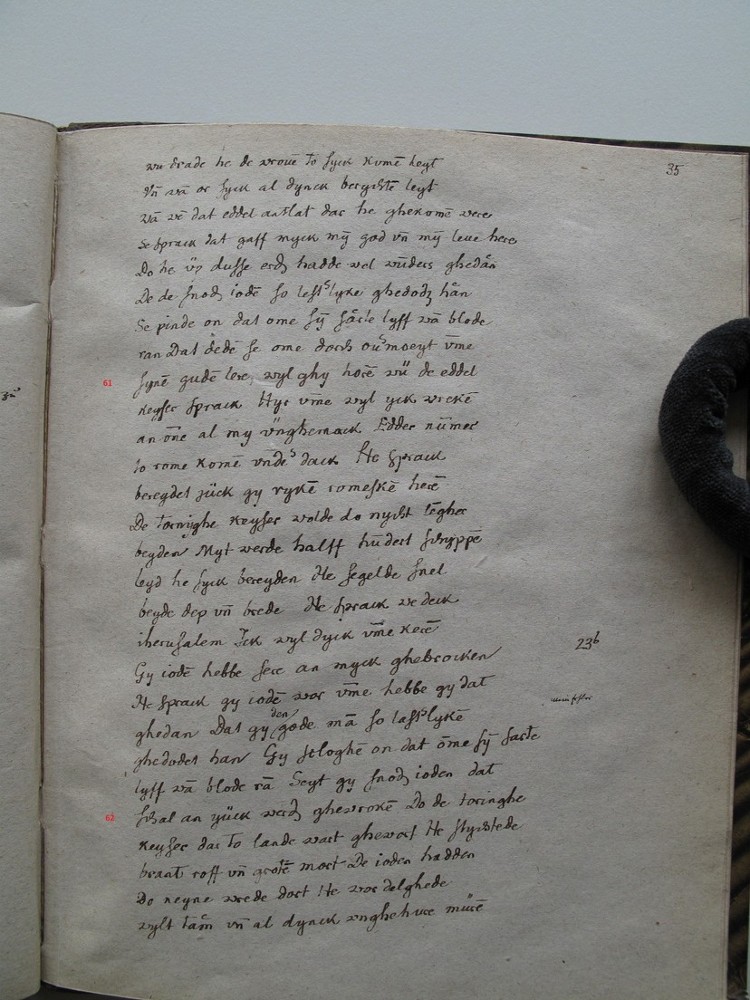 35
wu drade he de vrouē to syck komē heyt
Vn̄ vā or syck al dynck berychtē leyt
vā vē dat eddel antlat dar he ghekomē were
Se sprack dat gaff myck mȳ god vn̄ mȳ leue here
Do he vp dusse erdē hadde vel wūders ghedān
De de snodē iodē so lesterlyke ghedodē hān
Se pinde on dat ome sȳ sarte lyff vā blode
ran Dat dede se ome dorch ouermoeyt vme
61 synē gudē lere, wyl ghy horē wu de eddel
keyser sprack Hyr vme wyl yck wrekē
an ōne al my vnghemack Edder nūmer
to rome komē vnder dack He sprack
bereydet jück gy rykē romeskē herē
De tornyghe keyser wolde do nycht lēgher
beyden Myt verde halff hūdert schyppē
leyd he syck bereyden He segelde snel
beyde dep vn̄ brede He sprack we deck
iherusalem Ick wyl dyck vme kerē
23b
Gy iodē hebbe sere an myck ghebrocken
He sprack gy iodē wor vme hebbe gy dat
ghedan Dat gy den gode mā so lasterlykē
ghedodet han Gy sloghē on dat ōme sȳ sarte
lyff vā blode rā Seyt gy snodē ioden dat
62 schal an yück werdē ghewrokē Do de toringhe
keyser dar to lande wart ghewert He stychtede
brant roff vn̄ grote mort De ioden hadden
Do neyne vrede dort He vor delghede
wylt tam vn̄ al dynck vnghehure mūrē